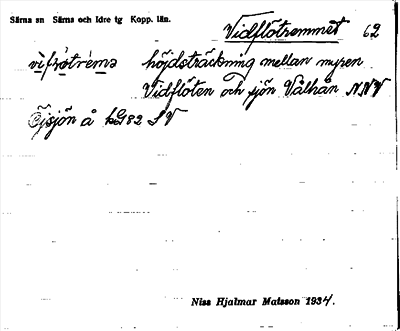 Särna sn Särna och Idre tg Kopp. län.
Vidflötremmet 62
höjdsträckning mellan myren
Vidflöten och sjön Valhån NNV
Öjsjön å kG82 SV
Niss Hjalmar Matsson 1934.